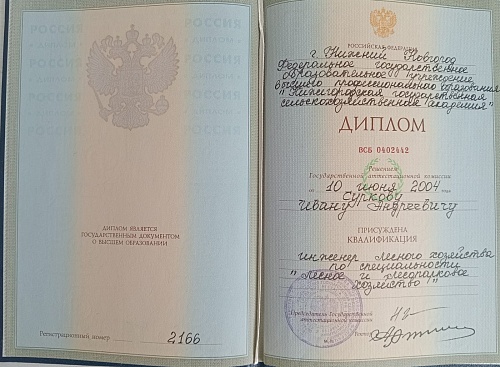 РОССИЯ
ДИПЛОМ ЯВЛЯЕТСЯ
ГОСУДАРСТВЕННЫМ ДОКУМЕНТОМ
О ВЫСШЕМ ОБРАЗОВАНИИ
Регистрационный номер 2166
РОССИЙСКАЯ ФЕДЕРАЦИЯ
г. Нижний Новгород
Федеральное государственное
образовательное учреждение
высшего профессионального образования
"Нижегородская государственная
сельскохозяйственная академия"
ДИПЛОМ
ВСБ 0402442
Решением
Государственной аттестационной комиссии
от 10 июня 2004 года
Суркову
Ивану Андреевичу
ПРИСУЖДЕНА
КВАЛИФИКАЦИЯ
инженер лесного хозяйства
по специальности
"Лесное и лесопарковое
хозяйство"
Председатель Государственной
аттестационной комиссии
Ректор
М.П.